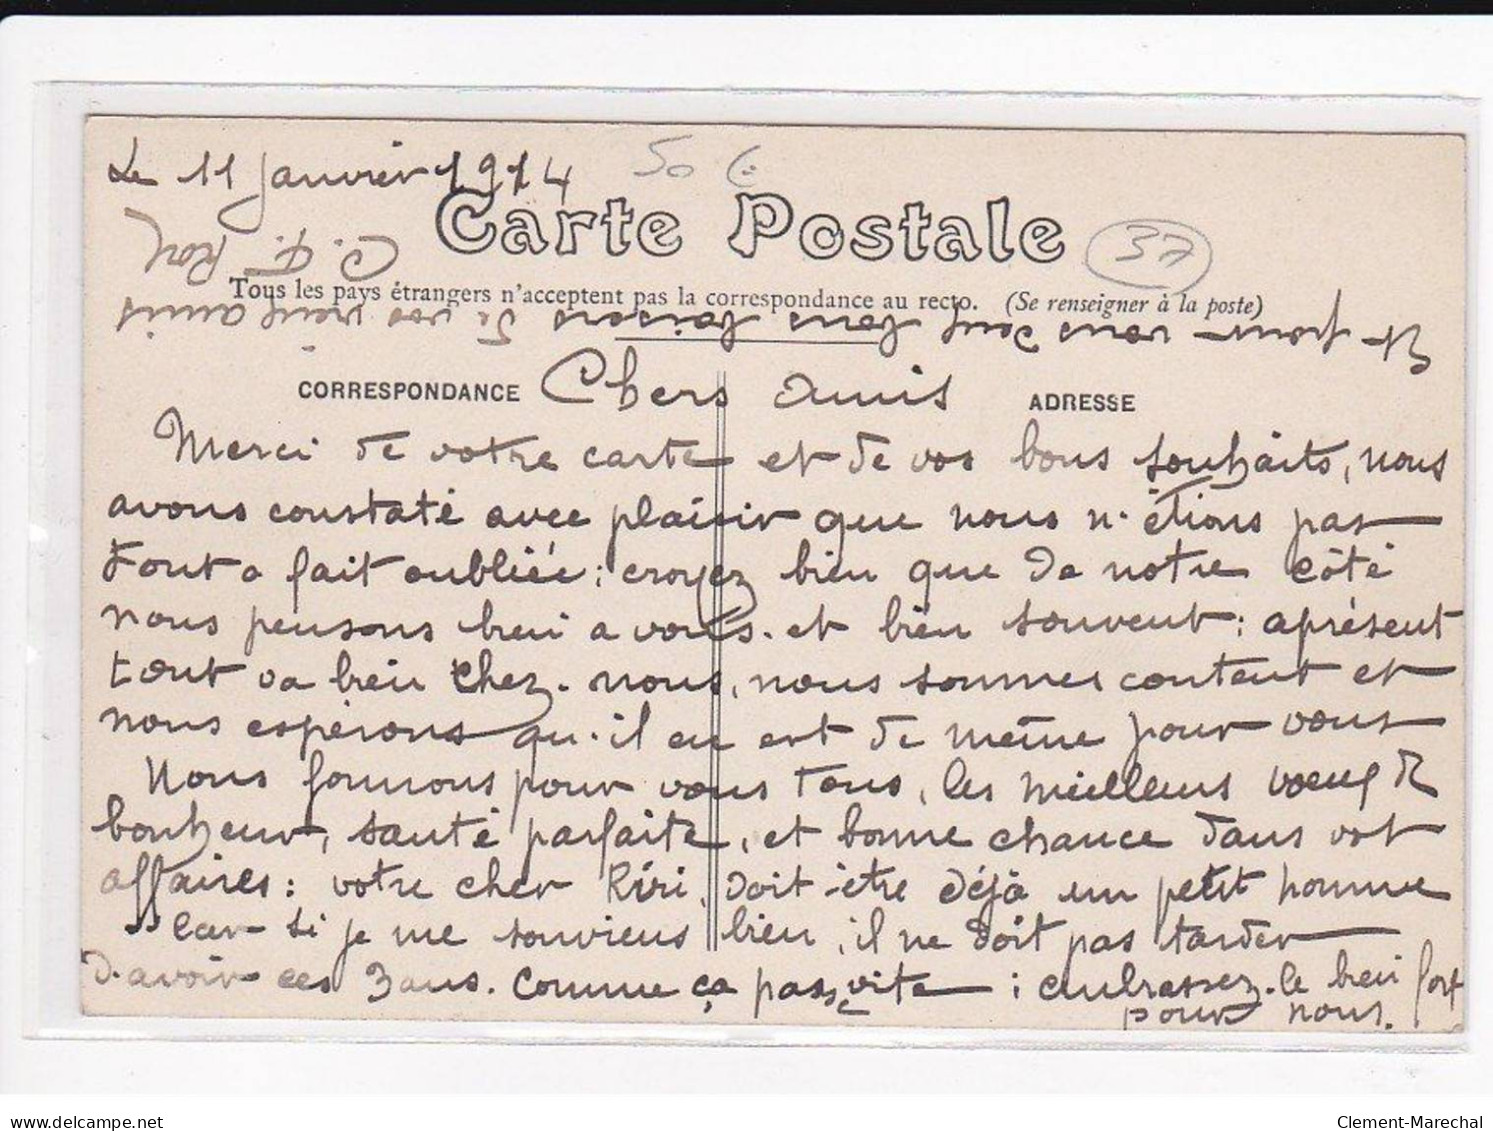 Le 11 janvier 1914
50 €
Carte Postale
37
Tous les pays étrangers n'acceptent pas la correspondance au recto. (Se renseigner à la poste)
CORRESPONDANCE
ADRESSE
Chers amis
Merci de votre carte et de vos bons souhaits, nous
avons constaté avec plaisir que nous n'étions pas
tout a fait oubliée ; croyez bien que de notre côté
nous pensons bien a vous. et bien souvent : aprésent
tout va bien chez-nous, nous sommes content et
nous espérons qu'il en est de même pour vous
Nous formons pour vous tous, les meilleurs voeux de
bonheur, santé parfaite, et bonne chance dans vot
affaires : votre cher Riri, doit-être déjà un petit homme
car si je me souviens bien, il ne doit pas tarder
d'avoir ces 3 ans. Comme ça passe vite ; embrassez-le bien fort
pour nous.
Et pour vous deux bons baisers de vos vieux amis
C. F.
delcampe.net
Clement-Marechal